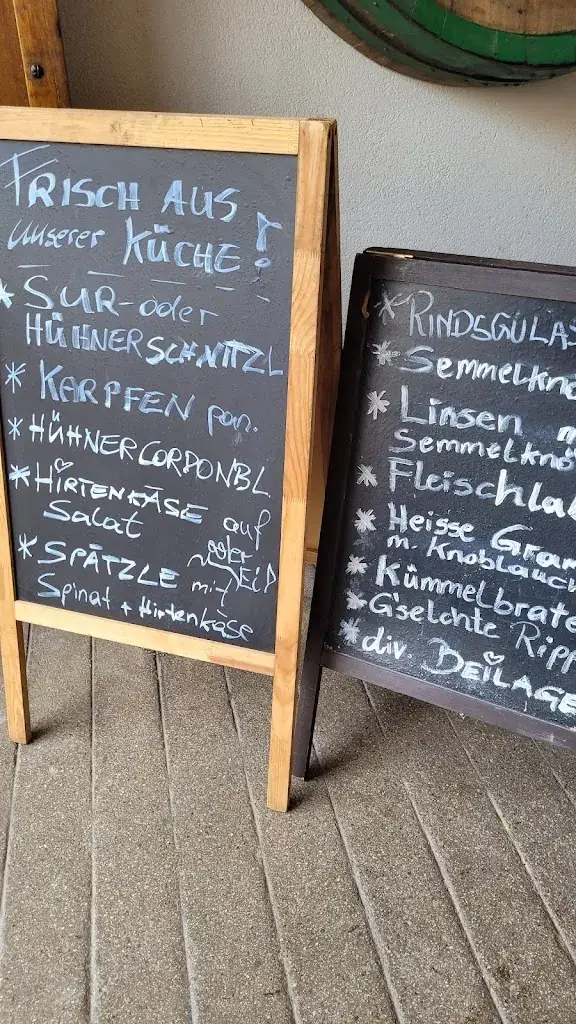 FRISCH AUS
unserer KÜCHE!
* SUR- oder
HÜHNERSCHNITZL
* KARPFEN pan.
* HÜHNERCORDONBL.
* HIRTENKÄSE auf
Salat oder
* SPÄTZLE mit EiP
Spinat + Hirtenkäse
* RINDSGULAS
Semmelknö
* Linsen m
Semmelknö
* Fleischla
* Heisse Gram
m. Knoblauch
* Kümmelbrate
* G'selchte Ripp
* div. BEILAGE